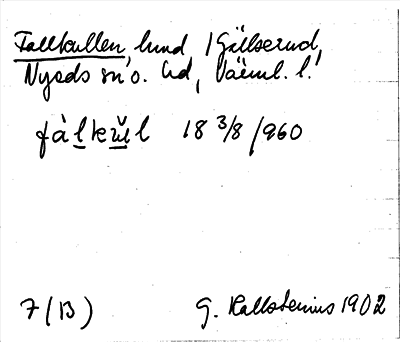 Fallkullen, lund, i Gällserud,
Nyeds sn o. hd, Värml. l.
fàlkŭl l 18 3/8 1960
7 (B) G. Kallstenius 1902